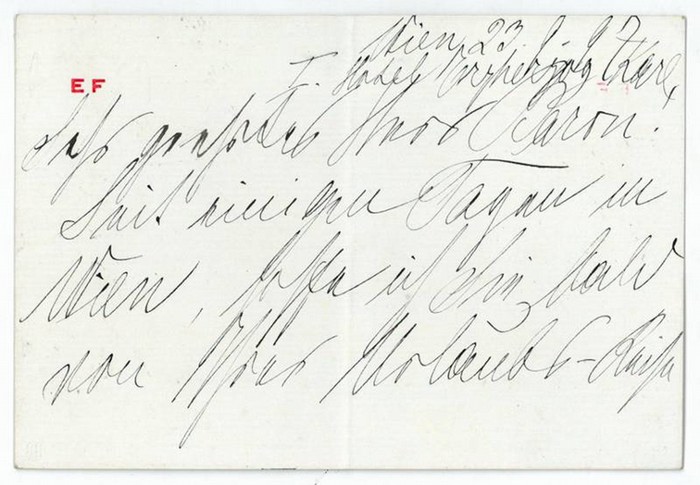 Wien 23.
I. Hotel Erzherzog Karl,
EF
Sehr geehrter Herr Baron!
Seit einigen Tagen in
Wien, hoffe ich Sie bald
von Ihrer Urlaubs-Reise